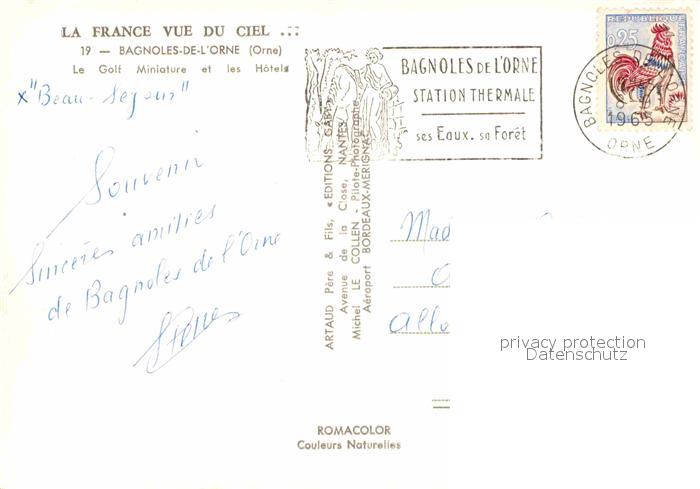 LA FRANCE VUE DU CIEL ...
19 - BAGNOLES-DE-L'ORNE (Orne)
Le Golf Miniature et les Hôtels
x "Beau-Sejour"
Souvenir
Sincères amitiés
de Bagnoles de l'Orne
BAGNOLES DE L'ORNE
STATION THERMALE
ses Eaux. sa Forêt
0,25
REPUBLIQUE
BAGNOLES DE L'ORNE
1965
ORNE
ARTAUD Père & Fils, «EDITIONS GABY»
Avenue de la Close, NANTES
Michel LE COLLEN - Pilote-Photographe
Aéroport BORDEAUX-MERIGNAC
Mad
O
Allo
privacy protection
Datenschutz
ROMACOLOR
Couleurs Naturelles